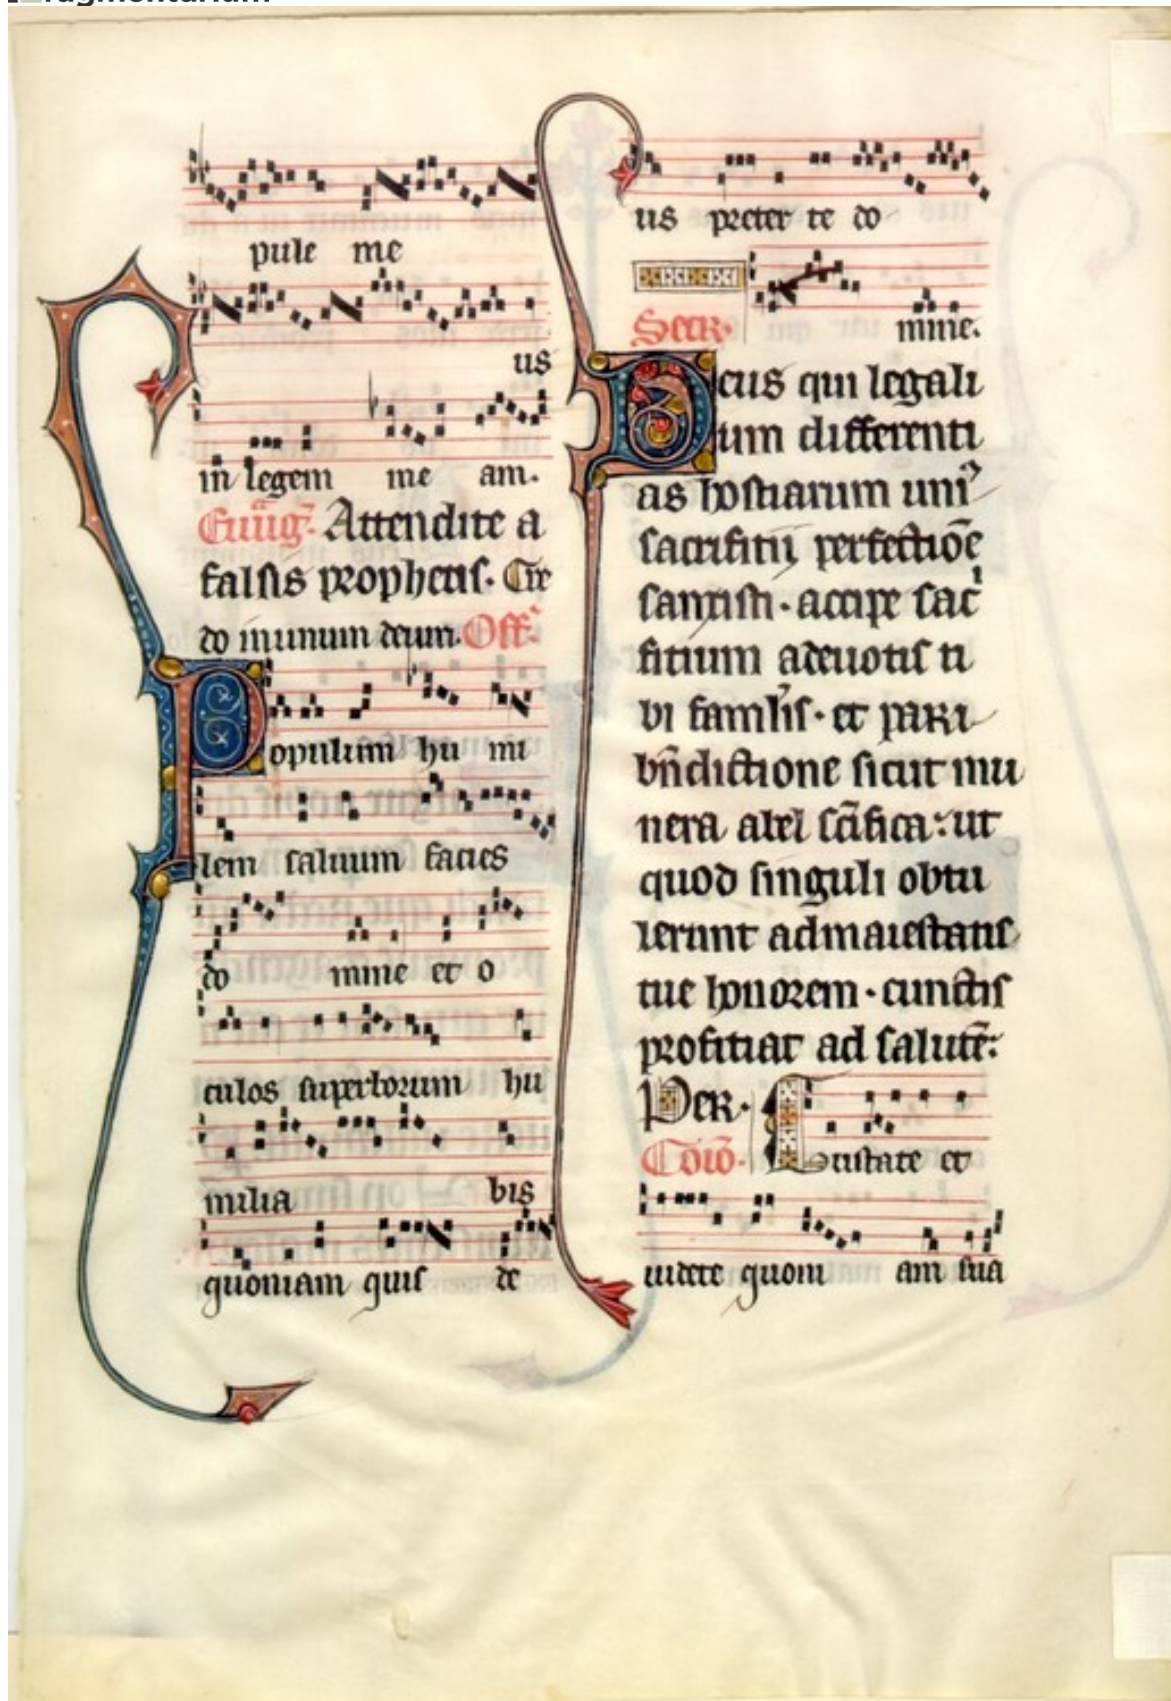 fragmentarium
pule me
us
in legem me am.
Euuāg̃. Attendite a
falsis prophetis. Cre
do in unum deum. Off̃.
Populum hu mi
lem saluum facies
do mine et o
culos superborum hu
milia bis
quoniam quis de
us preter te do
mine.
Secr.
Deus qui legali
um differenti
as hostiarum uni᾽
sacrifitij perfectiōe
sanxisti. accipe sac̍
fitium a deuotis ti
bi famĺis. et pari
bn̄dictione sicut mu
nera abel sc̄ifica: ut
quod singuli obtu
lerunt ad maiestatis
tue honorem. cunctis
profitiat ad salutē:
Per.
Cōiō. Gustate et
uidete quoni am sua